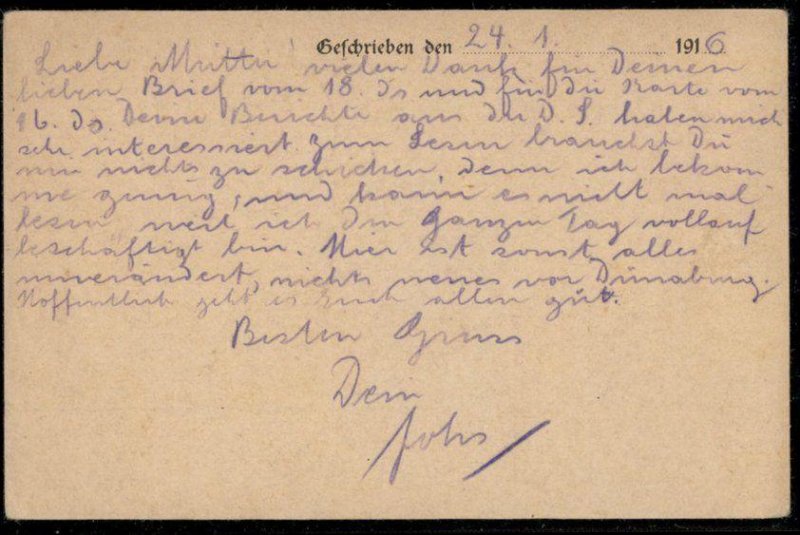 Geschrieben den 24. 1. 1916
Liebe Mutter! vielen Dank für Deinen
lieben Brief vom 18. ds und für die Karte vom
16. ds. Deine Berichte aus der D. S. haben mich
sehr interessiert. Zum Lesen brauchst Du
mir nichts zu schicken, denn ich bekom
me genug, und kann es nicht mal
lesen weil ich den ganzen Tag vollauf
beschäftigt bin. Hier ist sonst alles
unverändert, nichts neues vor Dünaburg.
Hoffentlich geht es Euch allen gut.
Besten Gruss
Dein
Johs